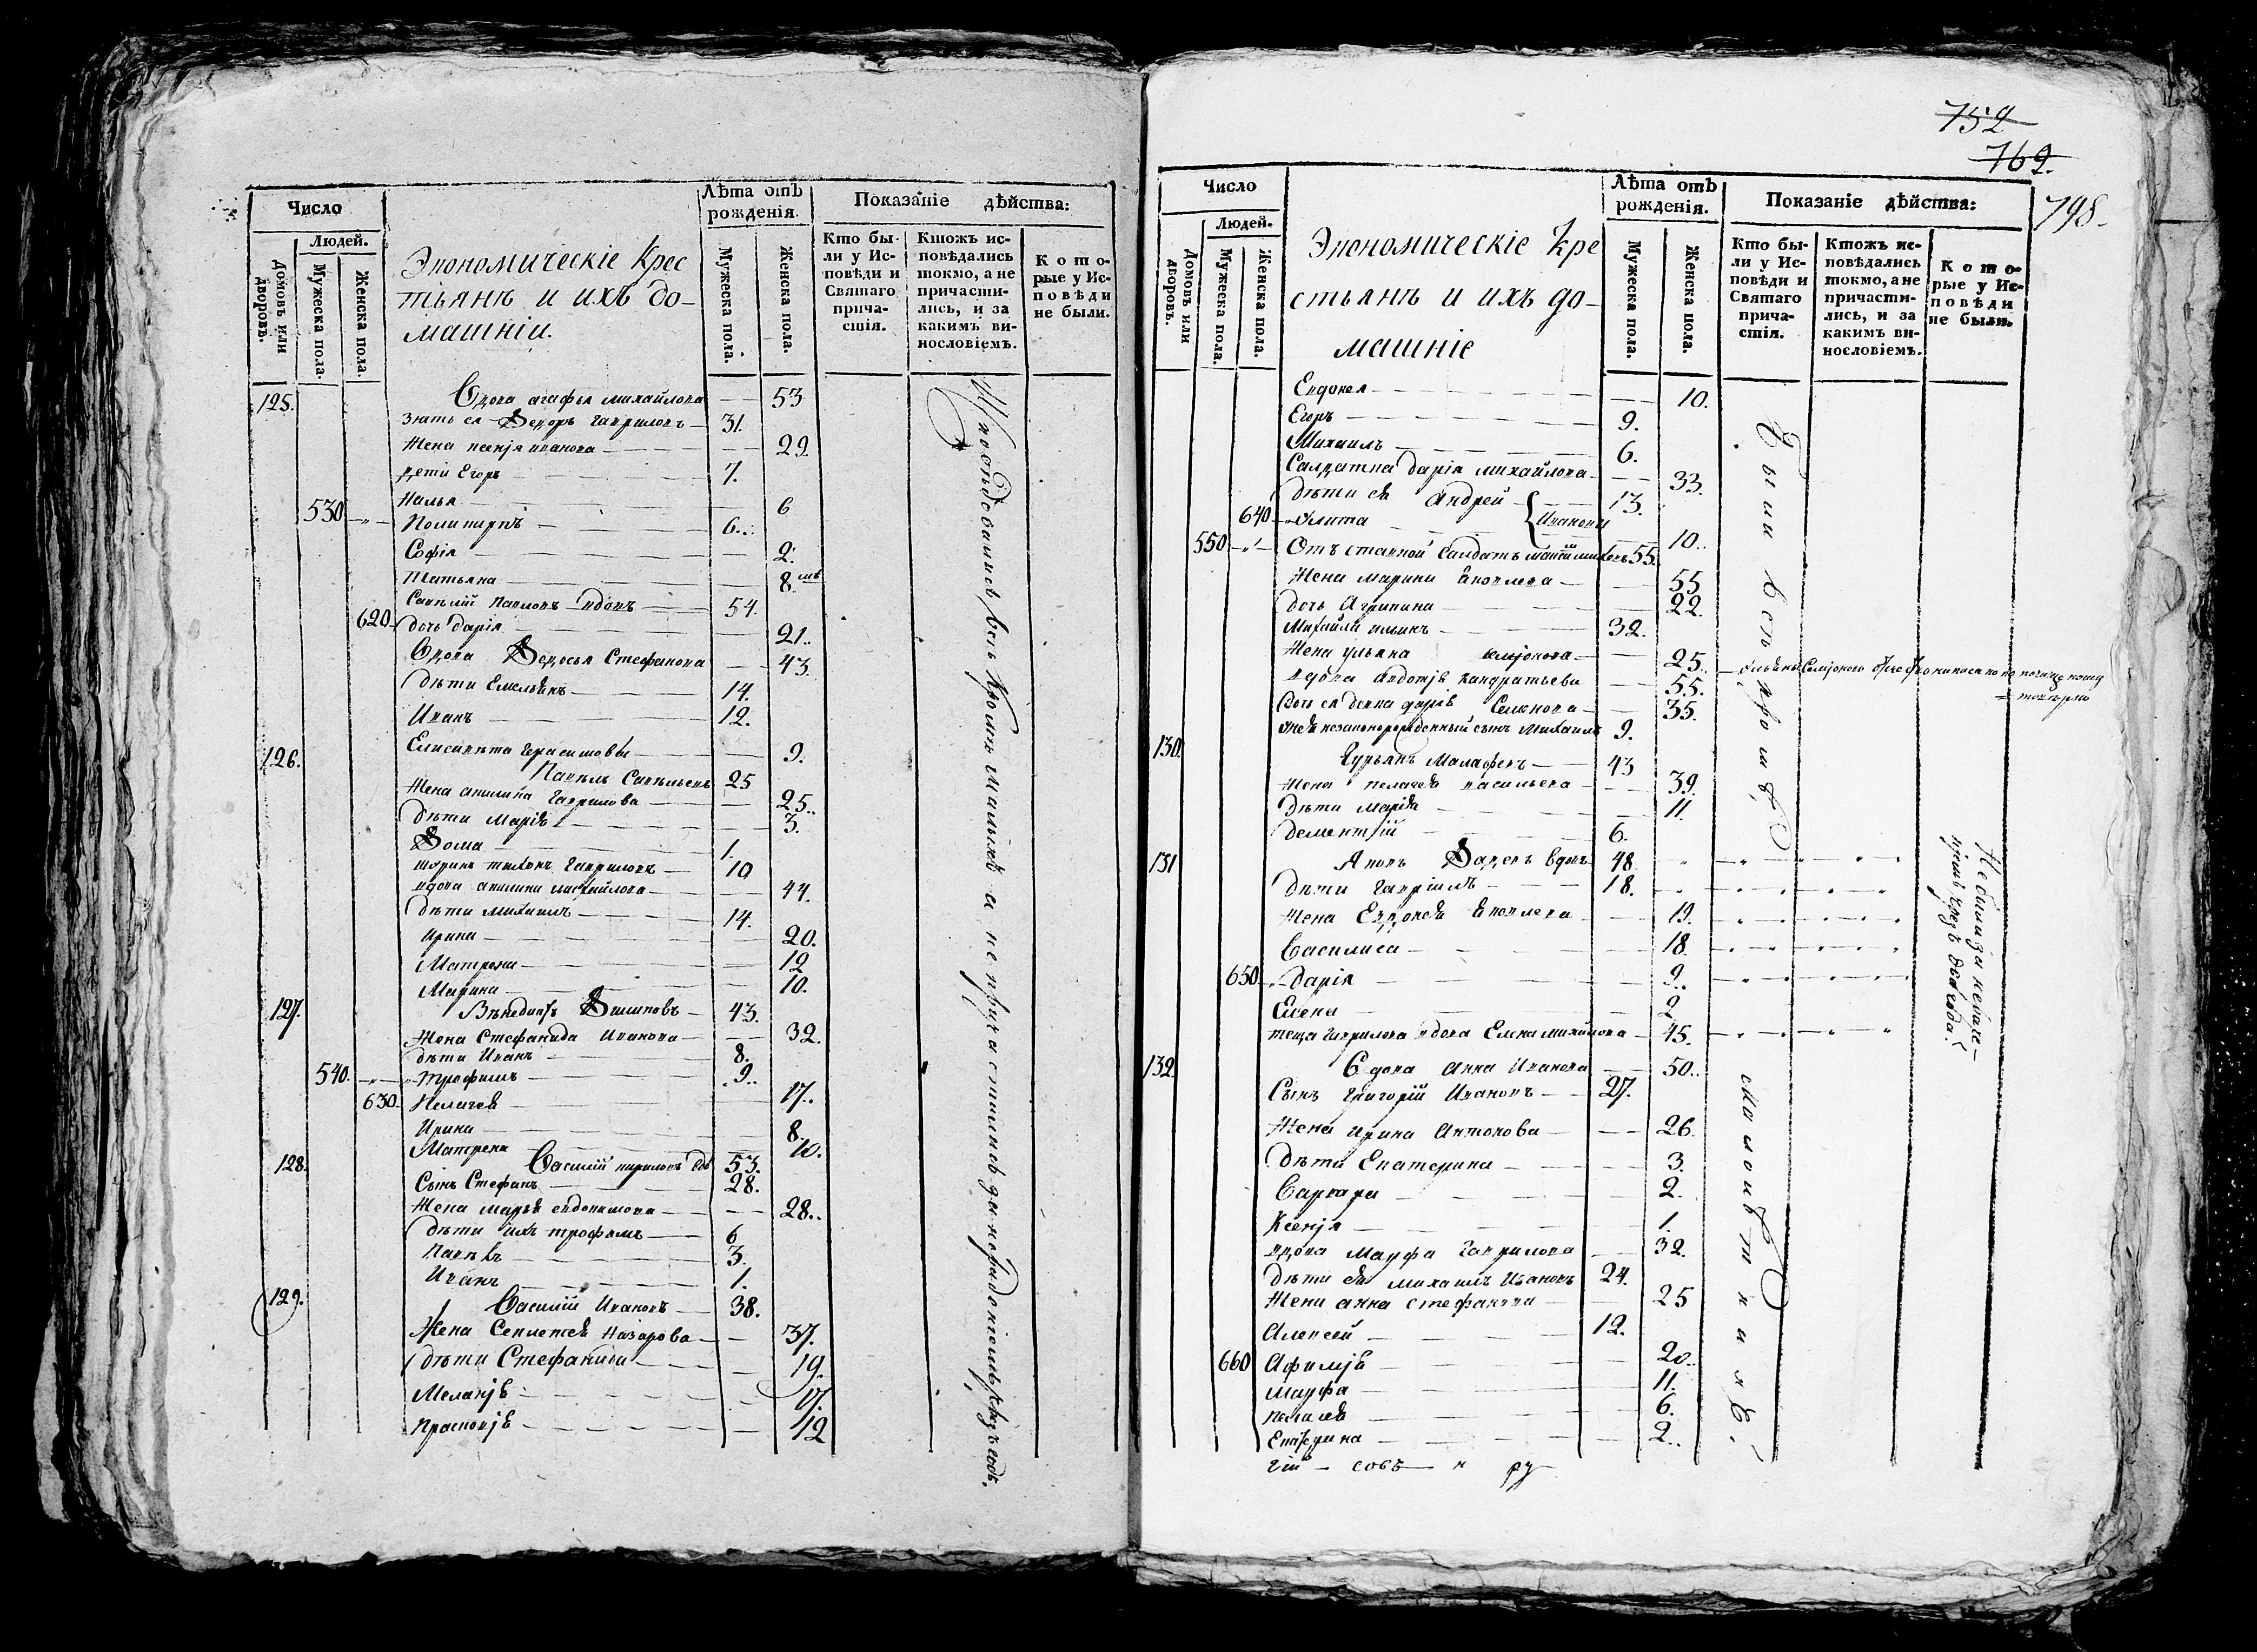 Число
Людей.
Домовъ или дворовъ.
Мужеска пола.
Женска пола.
Экономическіе Крес
тьянъ и ихъ до-
машніи.
Лѣта отъ
рожденія.
Мужеска пола.
Женска пола.
Показаніе дѣйства:
Кто бы-
ли у Ис-
повѣди и
Святаго
прича-
стія.
Ктожъ ис-
повѣдались
токмо, а не
причасти-
лись, и за
какимъ ви-
нословіемъ.
Кото-
рые у Ис-
повѣди
не были.
125. Вдова агафья михайлова — 53
зять ея Ѳедоръ Гавриловъ — 31.
Жена ксенія иванова — 29.
дети Егоръ — 7.
Наля — 6
530 Поликарпъ — 6.
Софія — 2.
Татьяна — 8 мѣ
Савелій Павловъ вдовъ — 54.
620 дочь дарія — 21.
Вдова Ѳедосья Стефанова — 43
дѣти Емельянъ — 14.
Иванъ — 12.
Елисавета Герасимовы — 9.
126. Павелъ Савельевъ 25
Жена акилина Гаврилова — 25.
дѣти Марія — 3.
Ѳома — 1.
шуринъ тихонъ Гавриловъ — 10
вдова акилина михайлова — 44.
дѣти михаилъ — 14.
Ирина — 20.
Матрена — 12
Марина — 10.
127. Венедиктъ Филиповъ — 43.
Жена Стефанида Иванова — 32.
дѣти Иванъ — 8.
540. Трофимъ — 9.
630. Пелагея — 17.
Ирина — 8.
Матрена — 10.
128. Василій кириловъ вдо 53.
Сынъ Стефанъ — 28.
Жена марья евдокимова — 28.
дѣти ихъ трофимъ — 6
Павелъ — 3.
Иванъ — 1.
129. Василій Ивановъ — 38.
Жена Секлетея Назарова — 37.
дѣти Стефанида — 19.
Меланія — 17.
Прасковія — 12
Исповѣдовались, всѣ кромѣ малыхъ а не причастились
752
769.
798.
Число
Людей.
Домовъ или дворовъ.
Мужеска пола.
Женска пола.
Экономическіе Кре
стьянъ и ихъ до-
машніе
Лѣта отъ
рожденія.
Мужеска пола.
Женска пола.
Показаніе дѣйства:
Кто бы-
ли у Ис-
повѣди и
Святаго
прича-
стія.
Ктожъ ис-
повѣдались
токмо, а не
причасти-
лись, и за
какимъ ви-
нословіемъ.
Кото-
рые у Ис-
повѣди
не были.
Евдокея — 10.
Егоръ — 9.
Михаилъ — 6.
Салдатка дарія михайлова — 33.
дѣти ея Андрей — 13.
640 Улита Ивановы — 10.
550 Отставной Салдатъ 55.
Жена марина Яковлева — 55
дочь Агрипина — 22.
Михайла ильинъ — 32.
Жена ульяна семіонова — 25.
вдова авдотія кандратьева — 55.
дочь ея девка дарія Семенова — 35.
незаконорожденный сынъ Михаилъ 9.
130. Гурьянъ Малафеевъ — 43
Жена пелагея васильева — 39.
дѣти марія — 11.
дементій — 6.
131 Яковъ Фадеевъ вдовъ 48.
дѣти Гавріилъ — 18.
Жена Евдокея Яковлева — 19.
Василиса — 18.
650 дарія — 9.
Елена — 2.
теща Гаврилова вдова Елена михайлова — 45.
132. Вдова Анна Иванова — 50.
Сынъ Григорій Ивановъ — 27.
Жена ирина Антонова — 26.
дѣти Екатерина — 3.
Варвара — 2.
Ксенія — 1.
вдова Марфа Гаврилова — 32.
дѣти ея михаилъ Ивановъ 24.
Жена анна стефанова — 25
Алексей — 12.
660 Афимія — 20.
Марфа — 11.
Пелагея — 6.
Екатерина — 2.
Были всѣ кромѣ
Не были за небытіемъ
гій — совъ — и ру